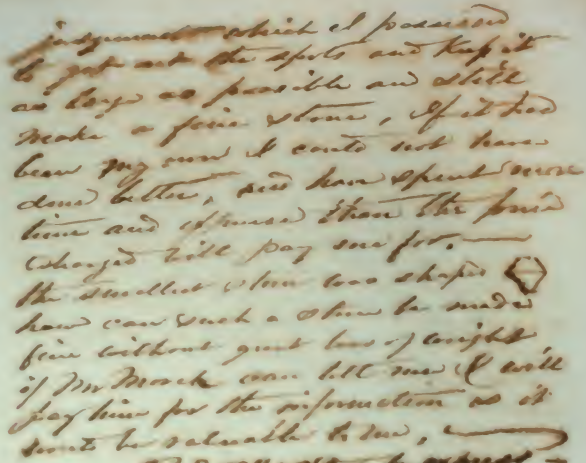 judgment which I possessed
to get out the spots and keep it
as large as possible and still
make a fine stone, If it had
been my own I could not have
done better, and have spent more
time and expense than the price
charged will pay me for.
the smallest stone was shaped
how can such a stone be made
fine without great loss of weight,
if Mr Morch can tell me I will
pay him for the information as it
to be valuable to me,